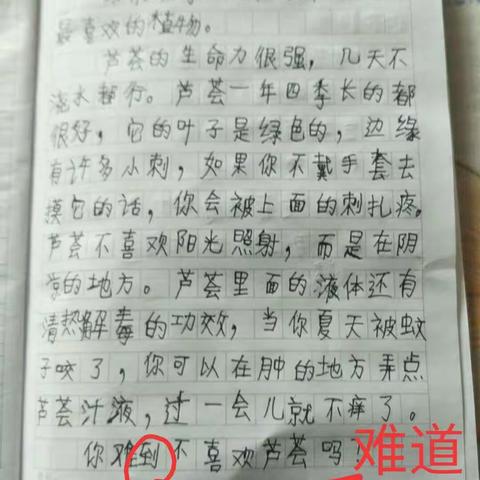 最喜欢的植物。
芦荟的生命力很强，几天不
浇水都行。芦荟一年四季长的都
很好，它的叶子是绿色的，边缘
有许多小刺，如果你不戴手套去
摸它的话，你会被上面的刺扎疼。
芦荟不喜欢阳光照射，而是在阴
凉的地方。芦荟里面的液体还有
清热解毒的功效，当你夏天被蚊
子咬了，你可以在肿的地方弄点
芦荟汁液，过一会儿就不痒了。
你难到不喜欢芦荟吗！
难道